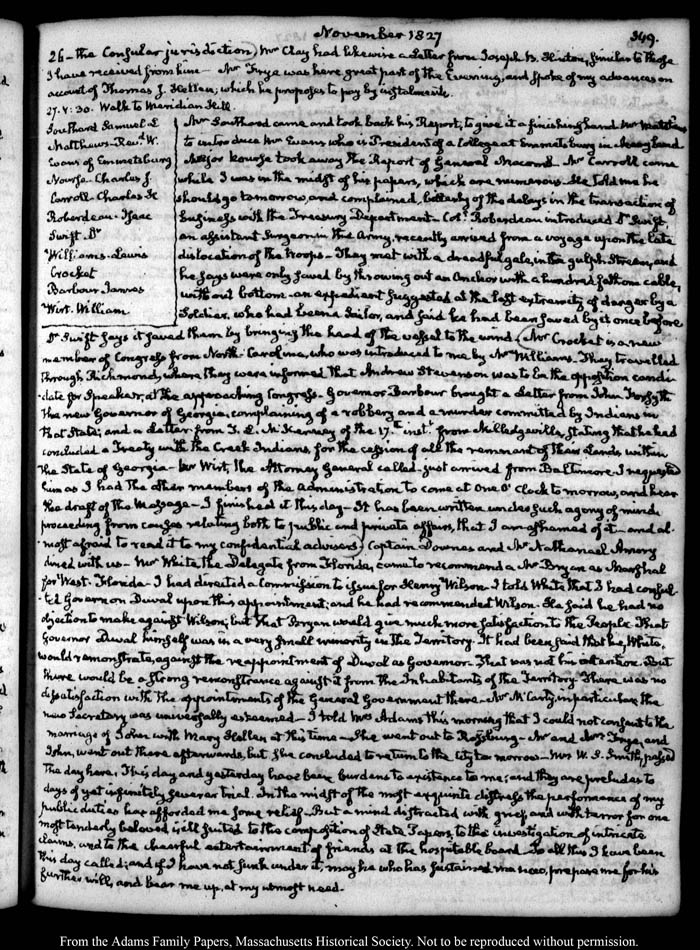 November 1827 349.
26 – the Consular jurisdiction) Mr Clay had likewise a Letter from Joseph B. Hinton, similar to those
I have received from him – Mr Frye was here great part of the Evening, and spoke of my advances on
account of Thomas J. Hellen; which he proposes to pay by instalments.
27. V: 30. Walk to Meridian Hill.
Southard Samuel L
Matthews – Revd W.
Evans of Emmetsburg
Nourse – Charles J.
Carroll – Charles H
Roberdeau – Isaac
Swift Dr
Williams – Lewis
Crocket
Barbour James
Wirt. William
Mr Southard came and took back his Report, to give it a finishing hand Mr Matthews
to introduce Mr Evans who is President of a College at Emmetsburg in Maryland
Major Nourse took away the Report of General Macomb – Mr Carroll came
while I was in the midst of his papers, which are numerous – He told me he
should go tomorrow, and complained, bitterly of the delays in the transaction of
business with the Treasury Department – Col. Roberdeau introduced Dr Swift,
an assistant Surgeon in the Army, recently arrived from a voyage upon the late
dislocation of the troops – They met with a dreadful gale, in the gulph Stream, and
he says were only saved by throwing out an Anchor with a hundred fathom cable,
without bottom – an expedient suggested at the last extremity of danger by a
Soldier, who had been a Sailor, and said he had been saved by it once before
Dr Swift says it saved them by bringing the head of the vessel to the wind. (Mr Crocket is a new
member of Congress from North-Carolina, who was introduced to me by Mr Williams. They travelled
through Richmond, where they were informed that Andrew Stevenson was to be the opposition candi-
date for Speaker, at the approaching Congress – Governor Barbour brought a Letter from John Forsyth
the new Governor of Georgia, complaining of a robbery and a murder committed by Indians in
that State; and a Letter from T. L. McKenney of the 17th inst. from Milledgeville, stating that he had
concluded a Treaty with the Creek Indians, for the cession of all the remnant of their Lands within
the State of Georgia – Mr Wirt, the Attorney General called – just arrived from Baltimore. I requested
him as I had the other members of the Administration to come at One O' Clock to morrow, and hear
the draft of the Message – I finished it this day – It has been written under such agony of mind
proceeding from causes relating both to public and private affairs, that I am ashamed of it – and al-
most afraid to read it to my confidential advisers) Captain Downes and Mr Nathanael Amory
dined with us – Mr White, the Delegate from Florida, came to recommend a Mr Bryan as Marshal
for West-Florida – I had directed a Commission to issue for Henry Wilson. I told White that I had consul-
ted Governor Duval upon this appointment; and he had recommended Wilson – He said he had no
objection to make against Wilson; but that Bryan would give much more satisfaction to the People. That
Governor Duval himself was in a very small minority in the Territory. It had been said that he, White,
would remonstrate, against the reappointment of Duval as Governor. That was not his intention. But
there would be a strong remonstrance against it from the Inhabitants of the Territory. There was no
dissatisfaction with the appointments of the General Government there – Mr McCarty, in particular, the
new Secretary was universally esteemed – I told Mrs Adams this morning that I could not consent to the
marriage of John with Mary Hellen, at this time – She went out to Rossburg – Mr and Mrs Frye, and
John, went out there afterwards, but she concluded to return to the City to morrow – Mrs W. S. Smith, passed
the day here. This day and yesterday have been burdens to existence to me; and they are preludes to
days of yet infinitely severer trial. In the midst of the most exquisite distress the performance of my
public duties has afforded me some relief – But a mind distracted with grief, and with terror for one
most tenderly beloved is ill suited to the composition of State Papers, to the investigation of intricate
claims, and to the cheerful entertainment of friends at the hospitable board – To all this I have been
this day called; and if I have not sunk under it, may he who has sustained me so, prepare me for his
further will, and bear me up, at my utmost need.
From the Adams Family Papers, Massachusetts Historical Society. Not to be reproduced without permission.